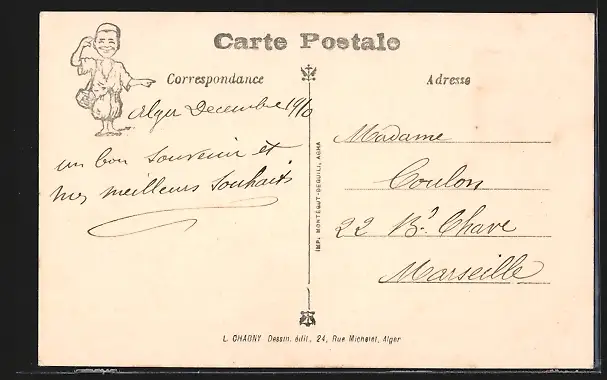 Carte Postale
Correspondance
Adresse
Alger Decembre 1910
un bon souvenir et
mes meilleurs souhaits
IMP. MONTÉGUT-DEGUILI, AGHA
Madame
Coulon
22 Bd. Chave
Marseille
L. CHAGNY Dessin. édit., 24, Rue Michelet, Alger